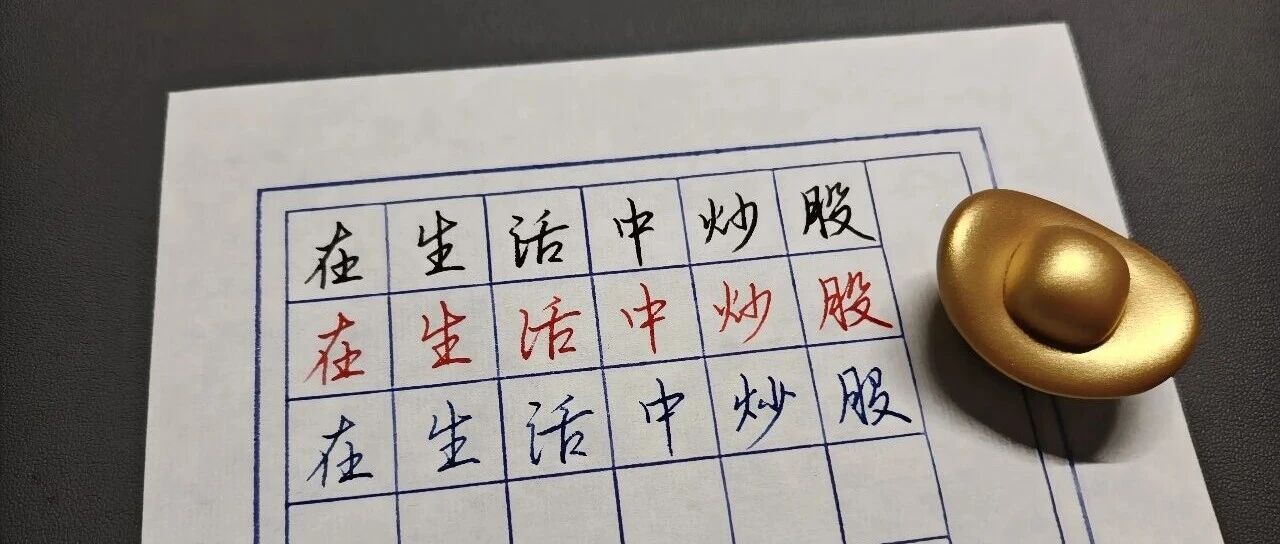 在生活中炒股
在生活中炒股
在生活中炒股